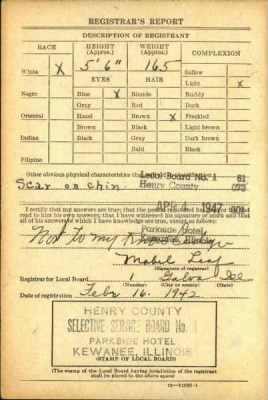 REGISTRAR'S REPORT
DESCRIPTION OF REGISTRANT
RACE HEIGHT (Approx.) WEIGHT (Approx.) COMPLEXION
5' 6" 165
White X EYES HAIR Sallow
Light X
Negro Blue X Blonde Ruddy
Gray Red Dark
Oriental Hazel Brown X Freckled
Brown Black Light brown
Indian Black Gray Dark brown
Bald Black
Filipino
Other obvious physical characteristics
Local Board No. 1 81
Scar on chin. Henry County 073
1947 001
Parkside Hotel
I certify that my answers are true; that the person registered has read or has had read to him his own answers; that I have witnessed his signature or mark and that all of his answers of which I have knowledge are true, except as follows:
Not to my knowledge
Mabel Leaf
(Signature of registrar)
Registrar for Local Board 1 Galva Ill
(Number) (City or county) (State)
Date of registration Feb. 16. 1942
HENRY COUNTY
SELECTIVE SERVICE BOARD No.
PARKSIDE HOTEL
KEWANEE, ILLINOIS
(STAMP OF LOCAL BOARD)
(The stamp of the Local Board having jurisdiction of the registrant shall be placed in the above space.)